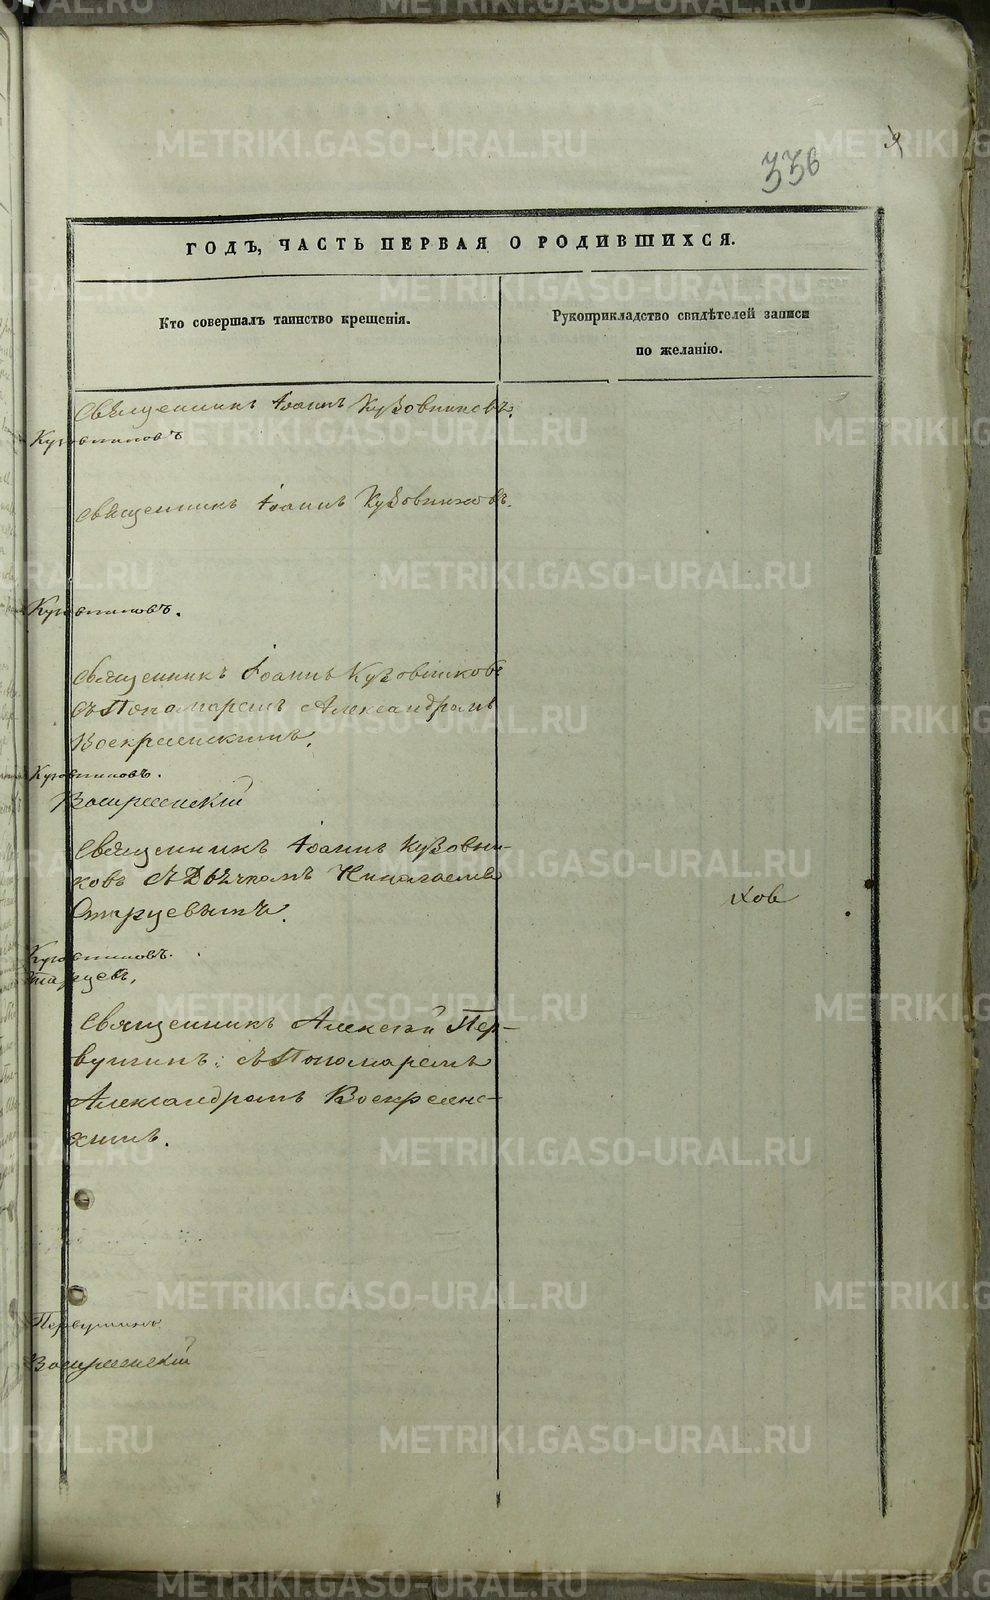 336
9
ГОДЪ, ЧАСТЬ ПЕРВАЯ О РОДИВШИХСЯ.
Кто совершалъ таинство крещенія.
Рукоприкладство свидѣтелей записи
по желанію.
Священникъ Іоаннъ Кузовниковъ.
Кузовниковъ
Священникъ Іоаннъ Кузовниковъ.
Кузовниковъ.
Священникъ Іоаннъ Кузовниковъ
съ Пономаремъ Александромъ
Воскресенскимъ.
Кузовниковъ.
Воскресенскій
Священникъ Іоаннъ Кузовни-
ковъ съ Дьячкомъ Николаемъ
Старцевымъ.
ховъ
Кузовниковъ.
Старцевъ.
Священникъ Алексѣй Пер-
вушинъ: съ Пономаремъ
Александромъ Воскресенс-
кимъ.
Первушинъ
Воскресенскій
METRIKI.GASO-URAL.RU